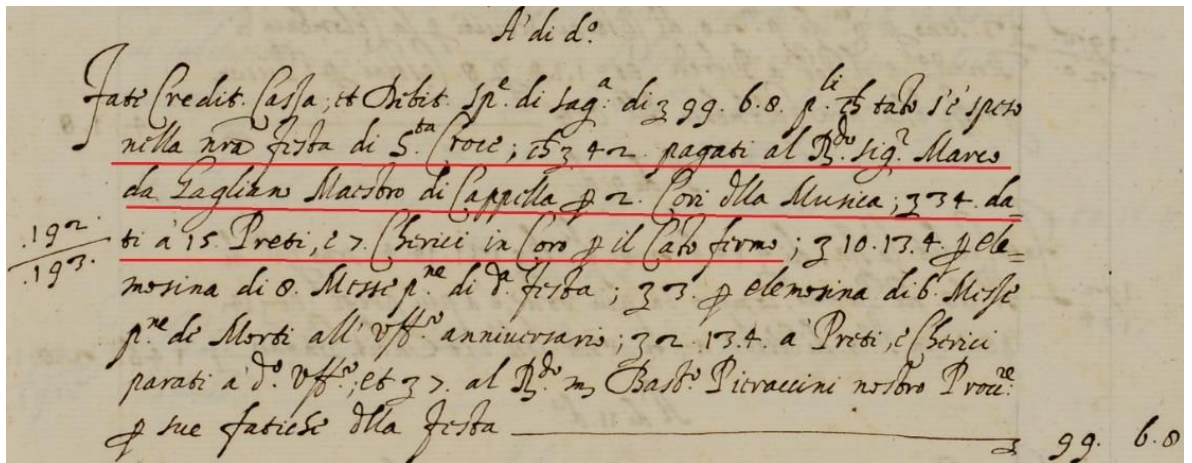 A' di d.º
Fate Credit. Cassa, et Debit. Sp.e di Sag.a di ʒ 99. 6. 8. p. li č tāto s'è speso
nella nrā festa di S.ta Croce; č ʒ 42. pagati al R.do Sig.r Marco
da Gagliano Maestro di Cappella ꝑ 2. Cori dlla Musica; ʒ 34. da=
ti à 15. Preti, e 7. Cherici in Coro ꝑ il Cāto firmo; ʒ 10. 13. 4. ꝑ ele=
.192
.193.
mosina di 8. Messe p.ne di d.a festa; ʒ 3. ꝑ elemosina di 6. Messe
p.ne de Morti all' Uff.º anniversario; ʒ 2. 13. 4. a Preti, e Cherici
parati a d.º Uff.º; et ʒ 7. al R.do m, Bast.º Pieraccini nostro Procc.re
ꝑ sue fatiche dlla festa ʒ 99. 6. 8